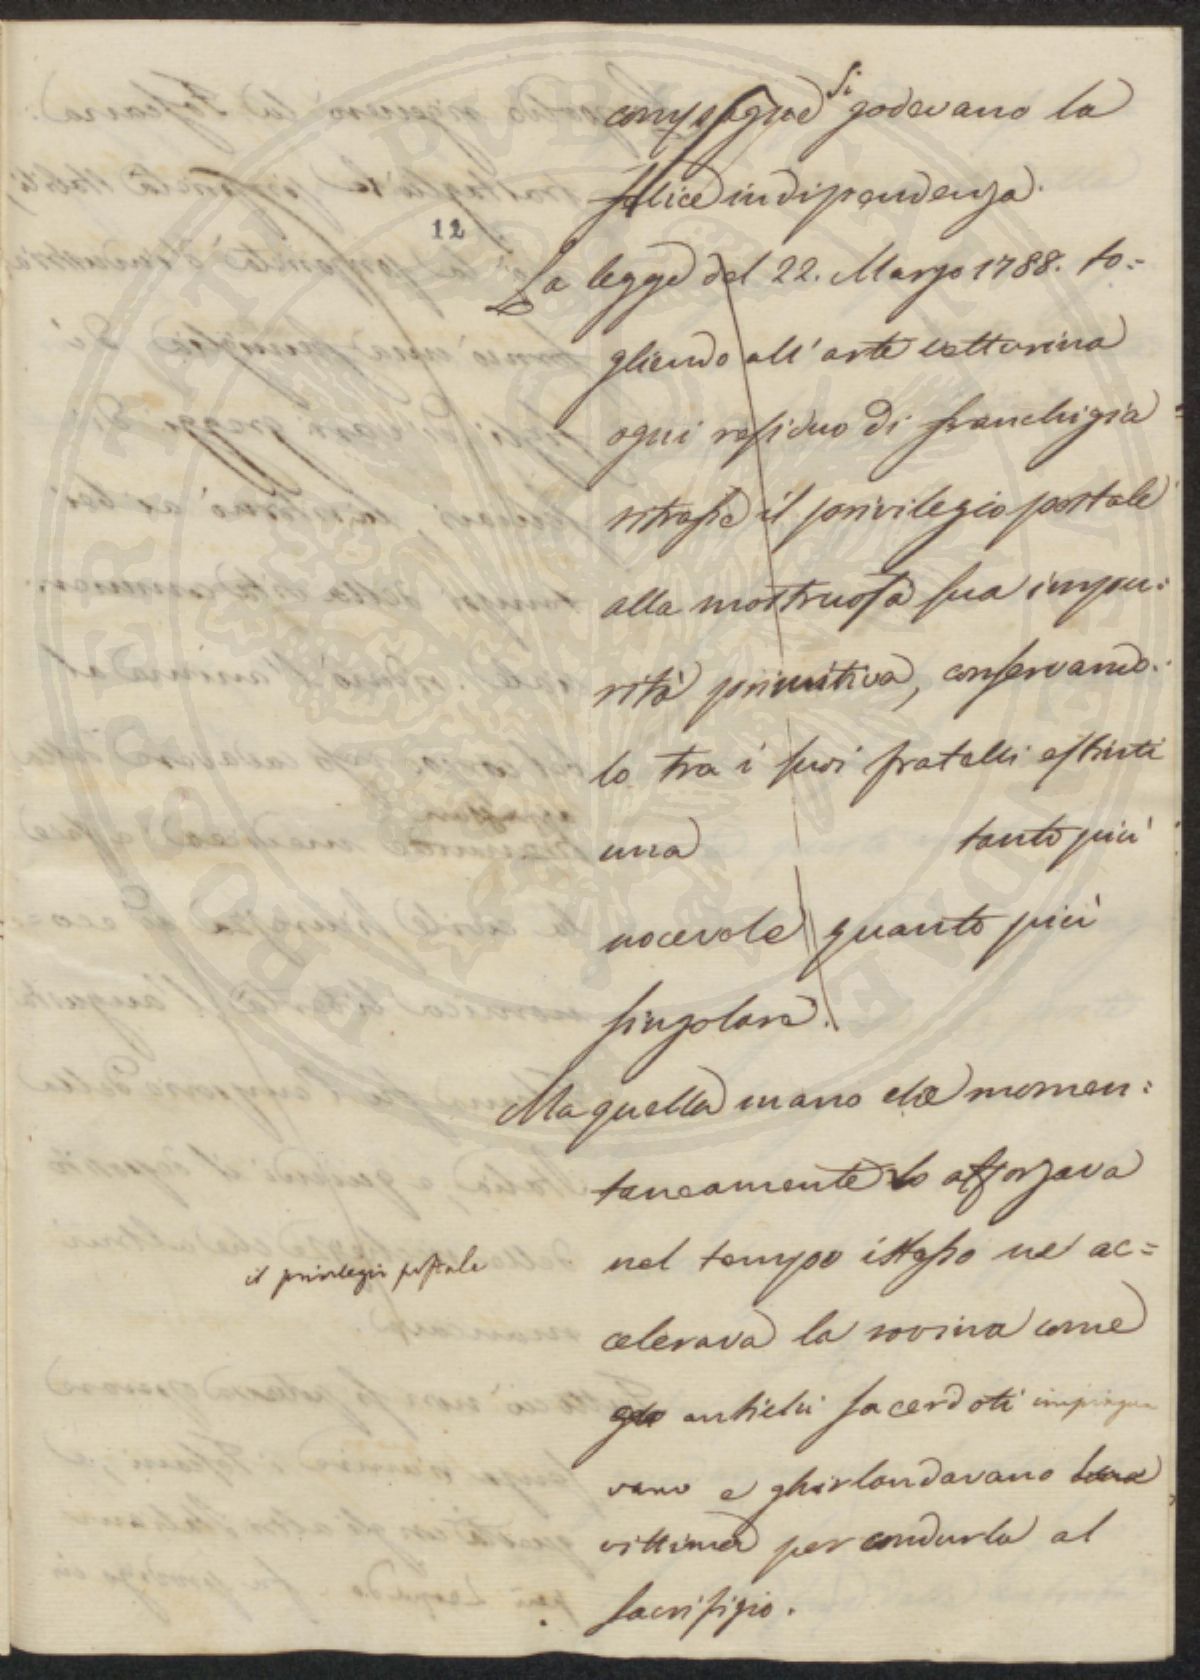 compagne si godevano la
felice indipendenza.
12
La legge del 22. Marzo 1788. to=
gliendo all'arte vetturina
ogni residuo di franchigia
ritrasse il privilegio postale
alla mostruosa sua impu=
rità primitiva, conservando=
lo tra i suoi fratelli estinti
una tanto più
nocevole quanto più
singolare.
Ma quella mano che momen=
taneamente lo afforzava
il privilegio postale
nel tempo istesso ne ac=
celerava la rovina come
gli antichi sacerdoti impingua
vano e ghirlandavano
vittima per condurla al
sacrifizio.